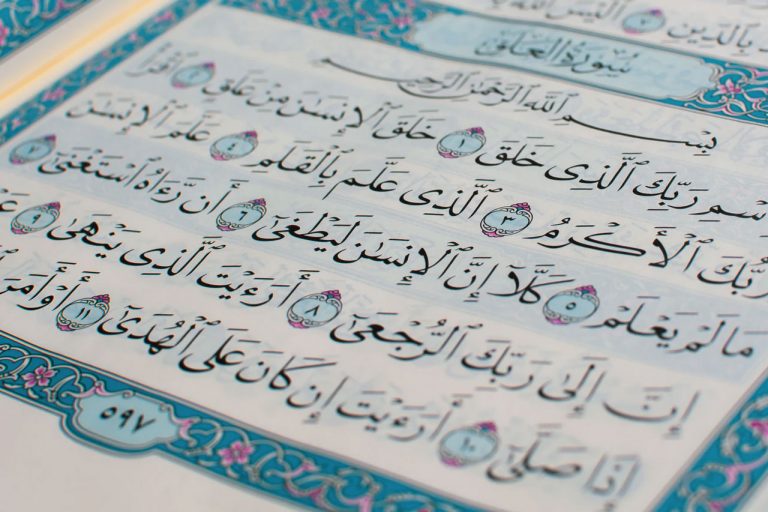 بِٱلدِّينِ ٧ أَلَيْسَ ٱللَّهُ
سُورَةُ العَلَقِ
بِسْمِ ٱللَّهِ ٱلرَّحْمَٰنِ ٱلرَّحِيمِ
ٱسْمِ رَبِّكَ ٱلَّذِى خَلَقَ ١ خَلَقَ ٱلْإِنسَٰنَ مِنْ عَلَقٍ ٢ ٱقْرَأْ
رَبُّكَ ٱلْأَكْرَمُ ٣ ٱلَّذِى عَلَّمَ بِٱلْقَلَمِ ٤ عَلَّمَ ٱلْإِنسَٰنَ
مَا لَمْ يَعْلَمْ ٥ كَلَّآ إِنَّ ٱلْإِنسَٰنَ لَيَطْغَىٰٓ ٦ أَن رَّءَاهُ ٱسْتَغْنَىٰٓ ٧
إِنَّ إِلَىٰ رَبِّكَ ٱلرُّجْعَىٰٓ ٨ أَرَءَيْتَ ٱلَّذِى يَنْهَىٰ ٩
إِذَا صَلَّىٰٓ ١٠ أَرَءَيْتَ إِن كَانَ عَلَى ٱلْهُدَىٰٓ ١١ أَوْ أَمَرَ
٥٩٧